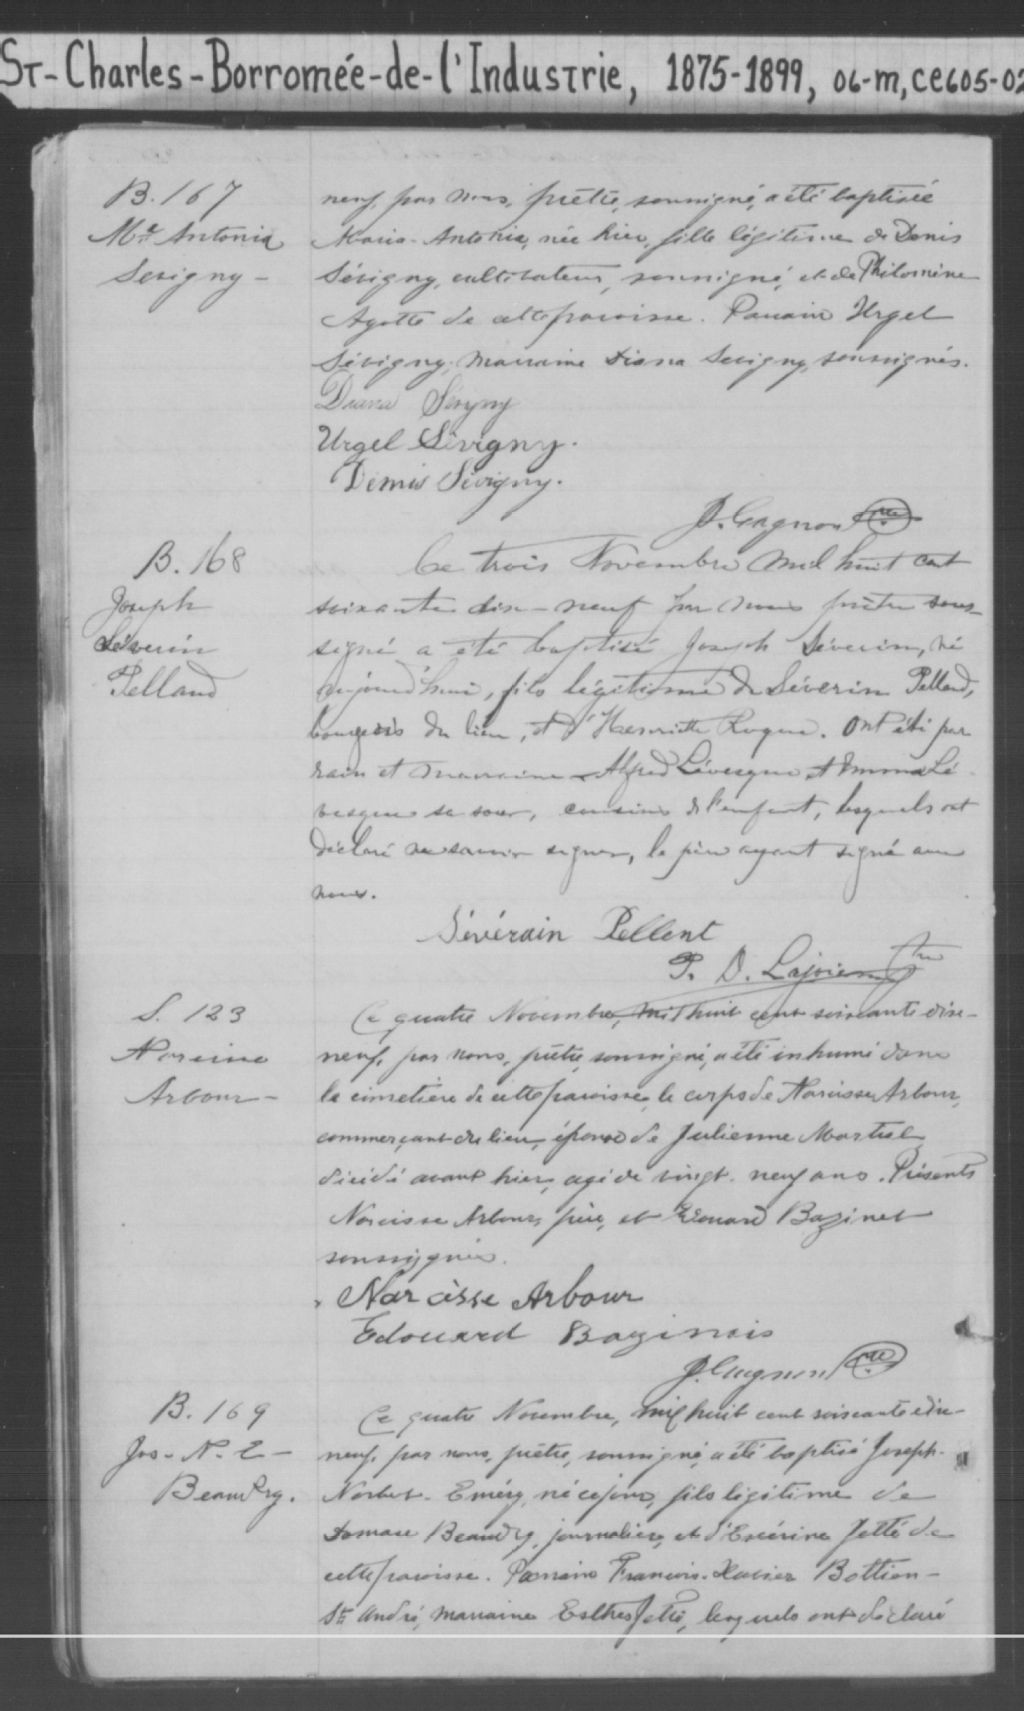 St-Charles-Borromée-de-l'Industrie, 1875-1899, 06-m, ce605-02
B. 167
Mie Antonia
Sevigny -
neuf, par nous, prêtre, soussigné, a été baptisée
Maria-Antonia, née hier, fille légitime de Denis
Sévigny, cultivateur, soussigné, et de Philomène
Ayotte de cette paroisse. Parrain Urgel
Sévigny, marraine Diana Sevigny, soussignés.
Diana Sévigny
Urgel Sévigny.
Démis Sévigny.
J. Gagnon Ptre
B. 168
Joseph
Séverin
Pelland
Ce trois Novembre mil huit cent
soixante dix-neuf par nous prêtre sous-
signé a été baptisé Joseph Séverin, né
aujourd'hui, fils légitime de Séverin Pelland,
bourgeois du lieu, et d'Henriette. Ont été par
rain et marraine Alfred Lévesque et Emma Lé-
vesque sa sœur, cousins de l'enfant, lesquels ont
déclaré ne savoir signer, le père ayant signé avec
nous.
Sévérain Pellent
P. D. Lajoie Ptre
S. 123
Narcisse
Arbour -
Ce quatre Novembre, mil huit cent soixante dix-
neuf, par nous, prêtre, soussigné, a été inhumé dans
le cimetière de cette paroisse, le corps de Narcisse Arbour,
commerçant du lieu, époux de Julienne Martel
décédé avant hier, agé de vingt-neuf ans. Présents
Narcisse Arbour, père, et Edouard Bazinet
soussignés.
Narcisse Arbour
Edouard Bazinais
J. Gagnon Ptre
B. 169
Jos-N-E-
Beaudry.
Ce quatre Novembre, mil huit cent soixante dix-
neuf, par nous, prêtre, soussigné, a été baptisé Joseph-
Norbert-Eméry, né ce jour, fils légitime de
Damase Beaudry, journalier, et d'Exérine Jetté de
cette paroisse. Parrain François-Xavier Bottion-
St André, marraine Esther Jetté, lesquels ont déclaré